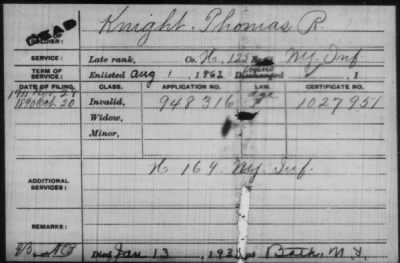 DEAD
SOLDIER: Knight, Thomas R.
SERVICE: Late rank, Co. H, 123 Reg't Ny. Inf
TERM OF SERVICE: Enlisted Aug 1, 1862 Discharged , 1
DATE OF FILING. CLASS. APPLICATION NO. LAW. CERTIFICATE NO.
1890 Oct. 20 Invalid, 948316 1027951
Widow,
Minor,
ADDITIONAL SERVICES: H 169 Ny. Inf.
REMARKS:
Died Jan 13, 192 at Bath, N.Y.